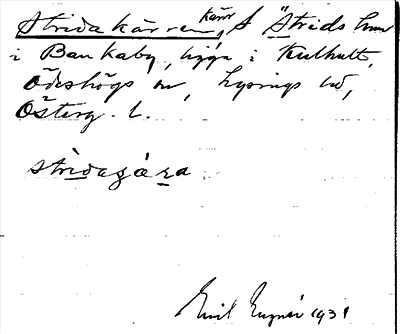 Stridakärren, kärr, t "Strids hm
i Bankaby, ligga i Kulhult,
Ödeshögs sn, Lysings hd,
Österg. l.
strìdagára
Emil 1931